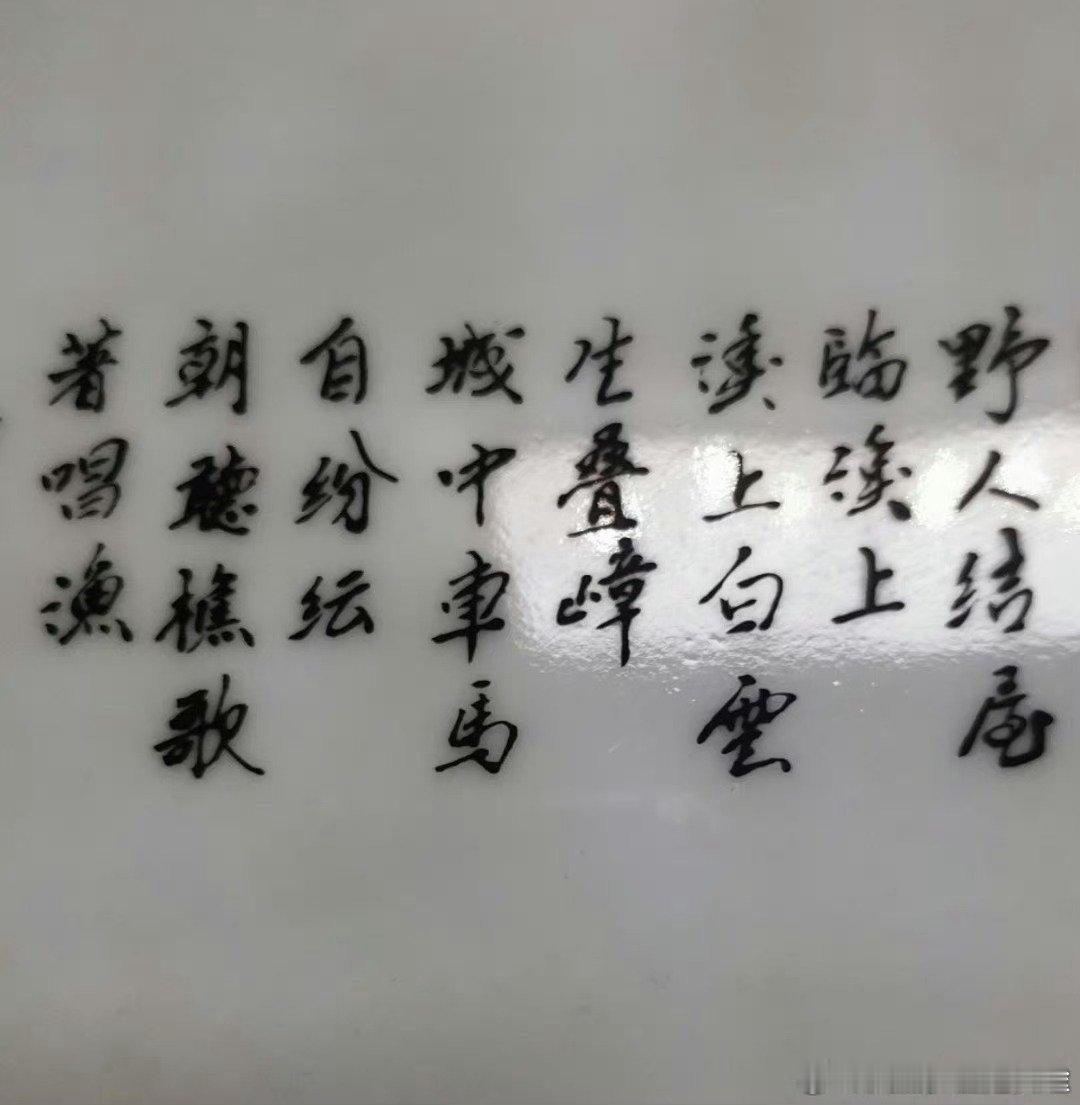 野人结屋
臨溪上
溪上白雲
生叠嶂
城中車馬
自纷纭
朝聽樵歌
著唱漁